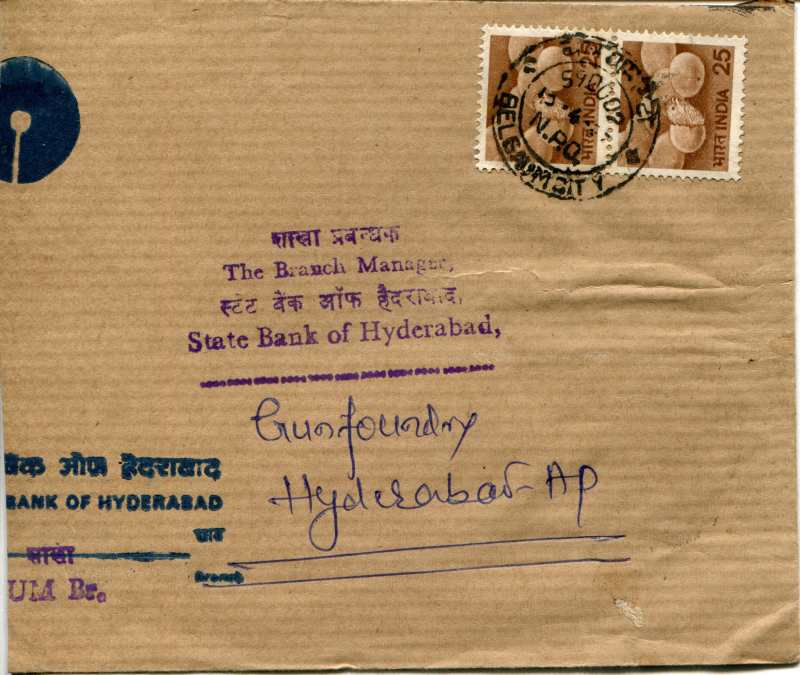 25
भारत INDIA
25
भारत INDIA
590002
N.P.O.
BELGAUM CITY
शाखा प्रबन्धक
The Branch Manager,
स्टेट बैंक ऑफ हैदराबाद,
State Bank of Hyderabad,
Gunfoundry
Hyderabad-AP
बैंक ऑफ हैदराबाद
BANK OF HYDERABAD
शाखा
Branch
UM Br.